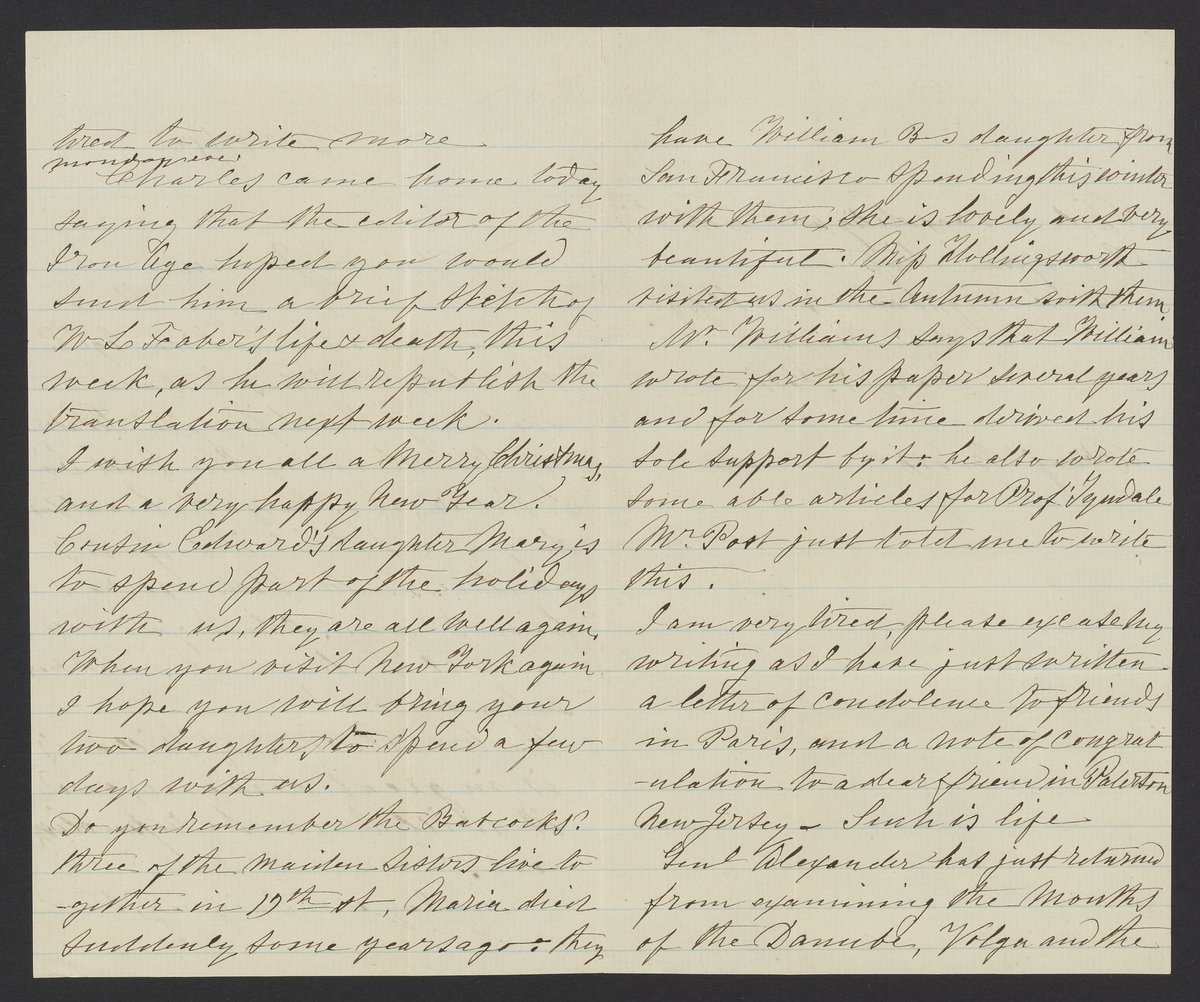 tired to write more
monday eve.
Charles came home today
saying that the editor of the
Iron Age hoped you would
send him a brief sketch of
W L Faber's life & death, this
week, as he will republish the
translation next week.
I wish you all a Merry Christmas,
and a very happy New Year.
Cousin Edward's daughter Mary, is
to spend part of the holidays
with us, they are all well again.
When you visit New York again
I hope you will bring your
two daughters to spend a few
days with us.
Do you remember the Babcocks?
three of the maiden sisters live to
-gether in 19th st, Maria died
suddenly some years ago: they
have William B-s daughter from
San Francisco spending this winter
with them, she is lovely and very
beautiful. Miss Hollingsworth
visited us in the Autumn with them
Mr. Williams says that William
wrote for his paper several years
and for some time derived his
sole support by it: he also wrote
some able articles for Prof Tyndale
Mr. Post just told me to write
this.
I am very tired, please excuse my
writing as I have just written
a letter of condolence to friends
in Paris, and a note of congrat
-ulation to a dear friend in Paterson
New Jersey - Such is life
Genl Alexander has just returned
from examining the Mouths
of the Danube, Volga and the